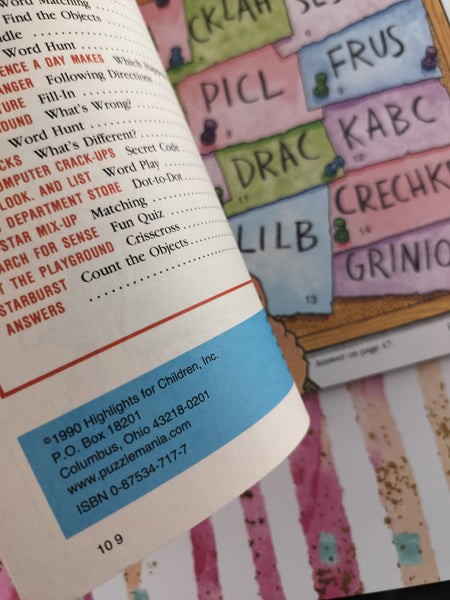 Word Matching
Find the Objects
Word Hunt
A DAY MAKES
Following Directions
Fill-In
What's Wrong?
Word Hunt
What's Different?
COMPUTER CRACK-UPS Secret Code
LOOK, AND LIST Word Play
DEPARTMENT STORE Dot-to-Dot
STAR MIX-UP Matching
FOR SENSE Fun Quiz
THE PLAYGROUND Crisscross
STARBURST Count the Objects
ANSWERS
©1990 Highlights for Children, Inc.
P.O. Box 18201
Columbus, Ohio 43218-0201
www.puzzlemania.com
ISBN 0-87534-717-7
10 9
CKLAH
FRUS
PICL
KABC
DRAC
10
CRECHKE
14
LILB
13
GRINIO
Answer on page 47.